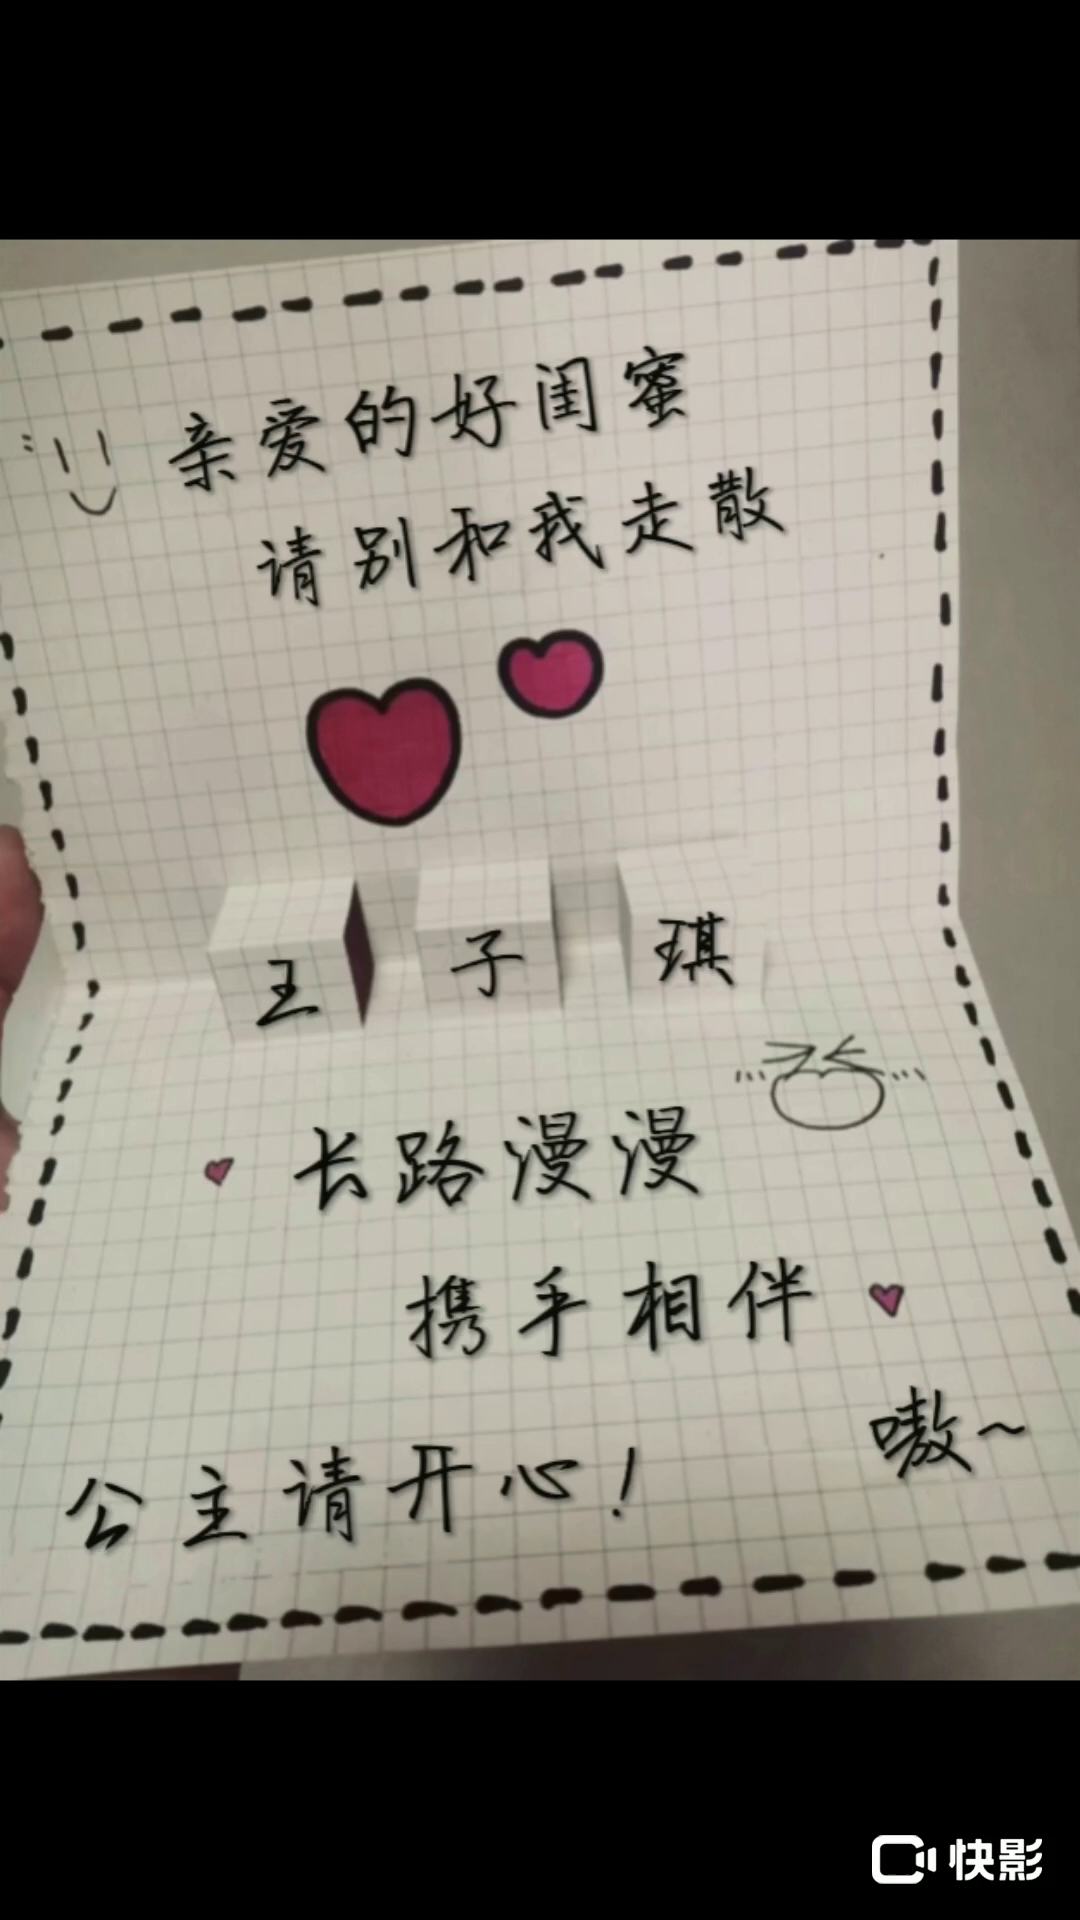 亲爱的好闺蜜
请别和我走散
王 子 琪
长路漫漫
携手相伴
嗷~
公主请开心！
快影